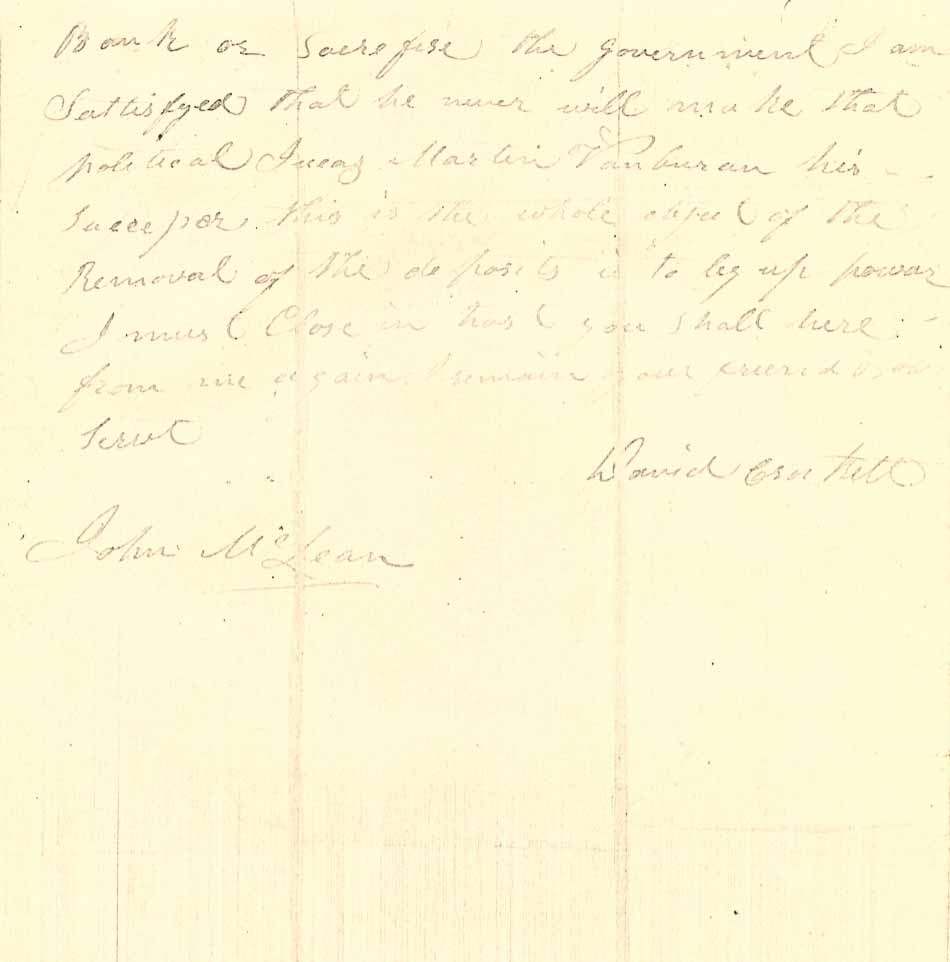 Bank or Sacrefise the government I am
Sattisfyed that he never will make that
political Judas Martin Vanburan his
Successor this is the whole object of the
Removal of the deposits is to leg up power
I must Close in hast you shall here
from me again I remain your friend &
Servt
David Crockett
John McLean